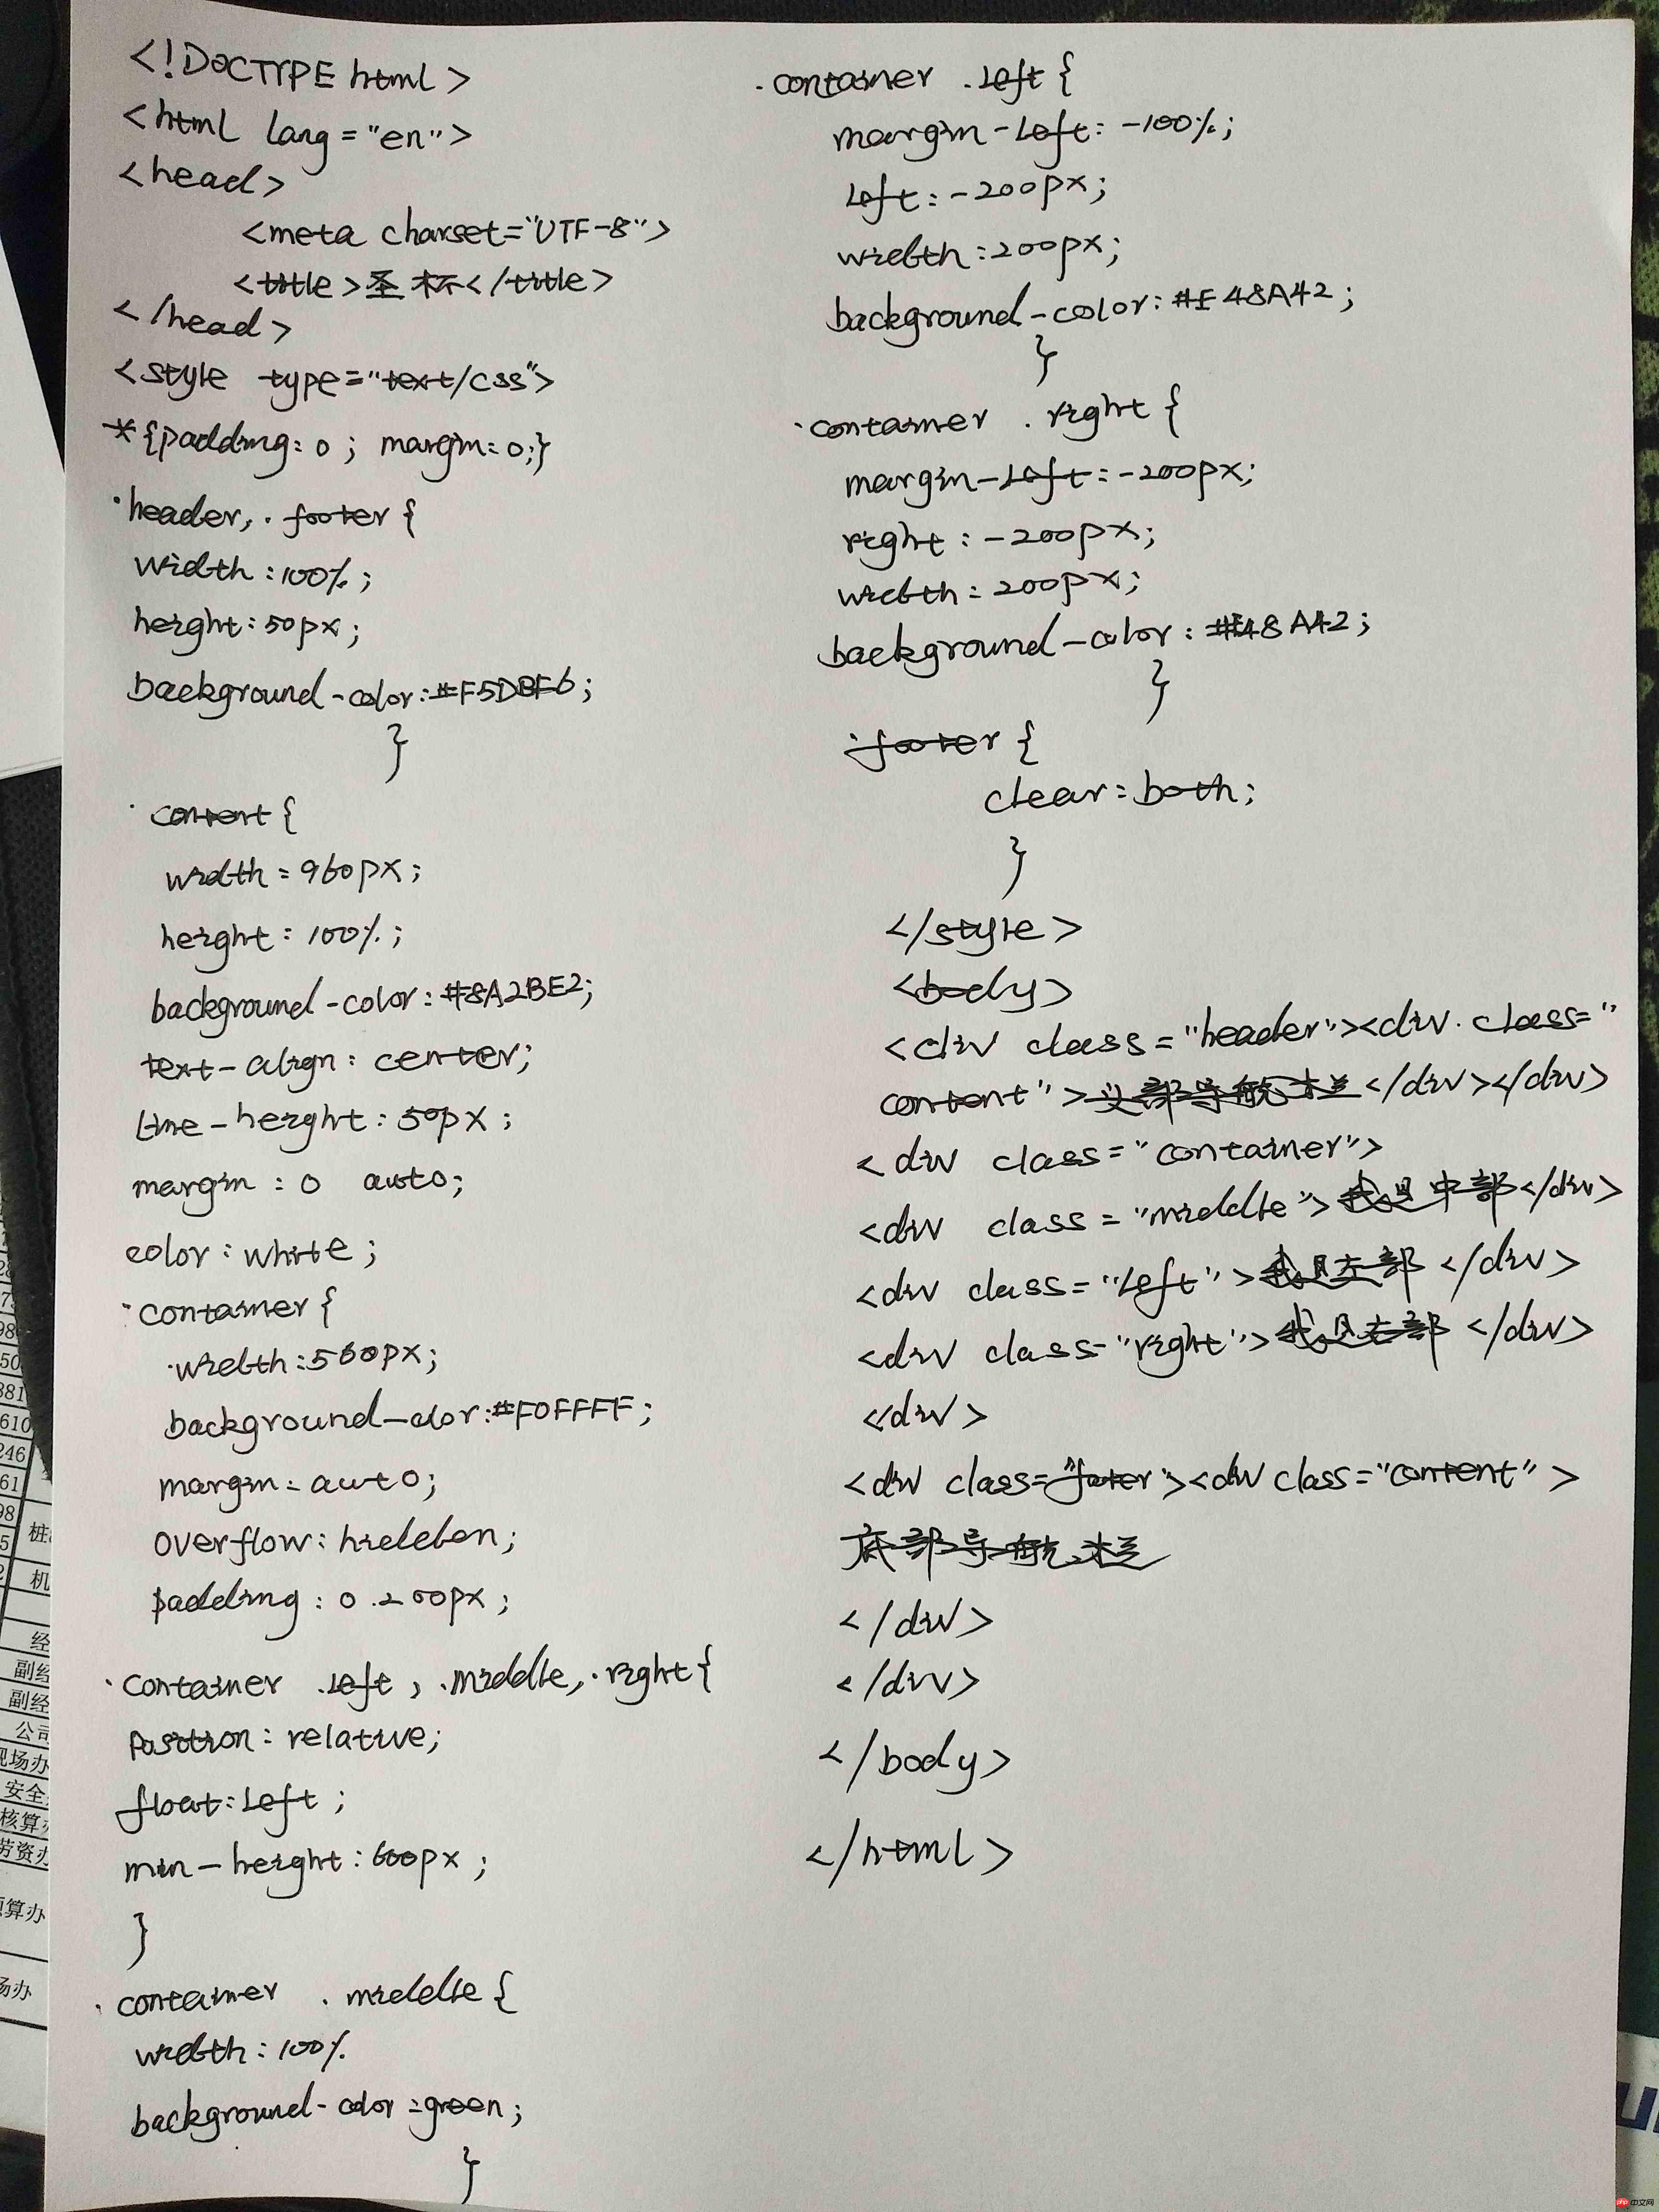 <!DOCTYPE html>
<html lang="en">
<head>
<meta charset="UTF-8">
<title>圣杯</title>
</head>
<style type="text/css">
*{padding:0; margin:0;}
.header, .footer{
width:100%;
height:50px;
background-color:#F5DBF6;
}
.content{
width:960px;
height:100%;
background-color:#8A2BE2;
text-align:center;
line-height:50px;
margin:0 auto;
color:white;
.container{
width:560px;
background-color:#F0FFFF;
margin:auto;
overflow:hidden;
padding:0 200px;
.container .left, .middle, .right{
Position:relative;
float:left;
min-height:600px;
}
.container .middle{
width:100%
background-color:green;
}
.container .left{
margin-left:-100%;
left:-200px;
width:200px;
background-color:#E48A42;
}
.container .right{
margin-left:-200px;
right:-200px;
width:200px;
background-color:#E48A42;
}
.footer{
clear:both;
}
</style>
<body>
<div class="header"><div class="
content">头部导航栏</div></div>
<div class="container">
<div class="middle">我是中部</div>
<div class="left">我是左部</div>
<div class="right">我是右部</div>
<div>
<div class="footer"><div class="content">
底部导航栏
</div>
</div>
</body>
</html>
246
61
98
桩
机
经
副经
副经
公司
现场办
安全
核算
劳资办
算办
场办
php中文网